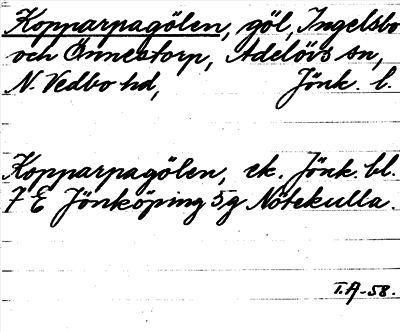 Kopparpagölen, göl, Ingelsbo
och Önnestorp, Adelövs sn,
N. Vedbo hd, Jönk. l.
Kopparpagölen, ek. Jönk. bl.
7 E Jönköping 5,g Nötekulla.
I.A-58.